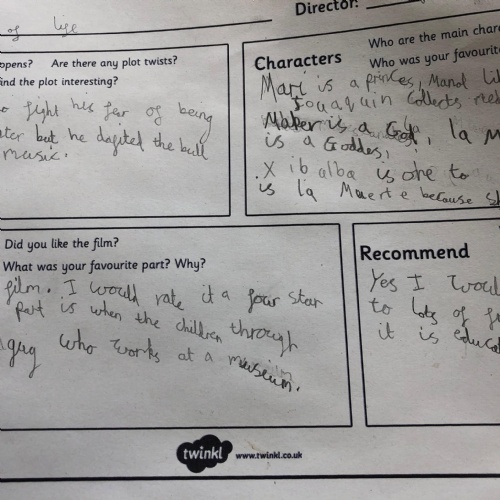 Director:
of life
ppens? Are there any plot twists?
find the plot interesting?
to fight his fear of being
but he dafited the bull
music.
Characters
Who are the main chara
Who was your favourite
Mari is a princes, Manol li
Joaquin collects med
Maker is a God, la M
is a Goddes,
Xibalba is one to
is la Muerte because sh
Did you like the film?
What was your favourite part? Why?
film. I would rate it a four star
part is when the children through
who works at a museum.
Recommend
Yes I would
to lots of
it is educat
twinkl www.twinkl.co.uk